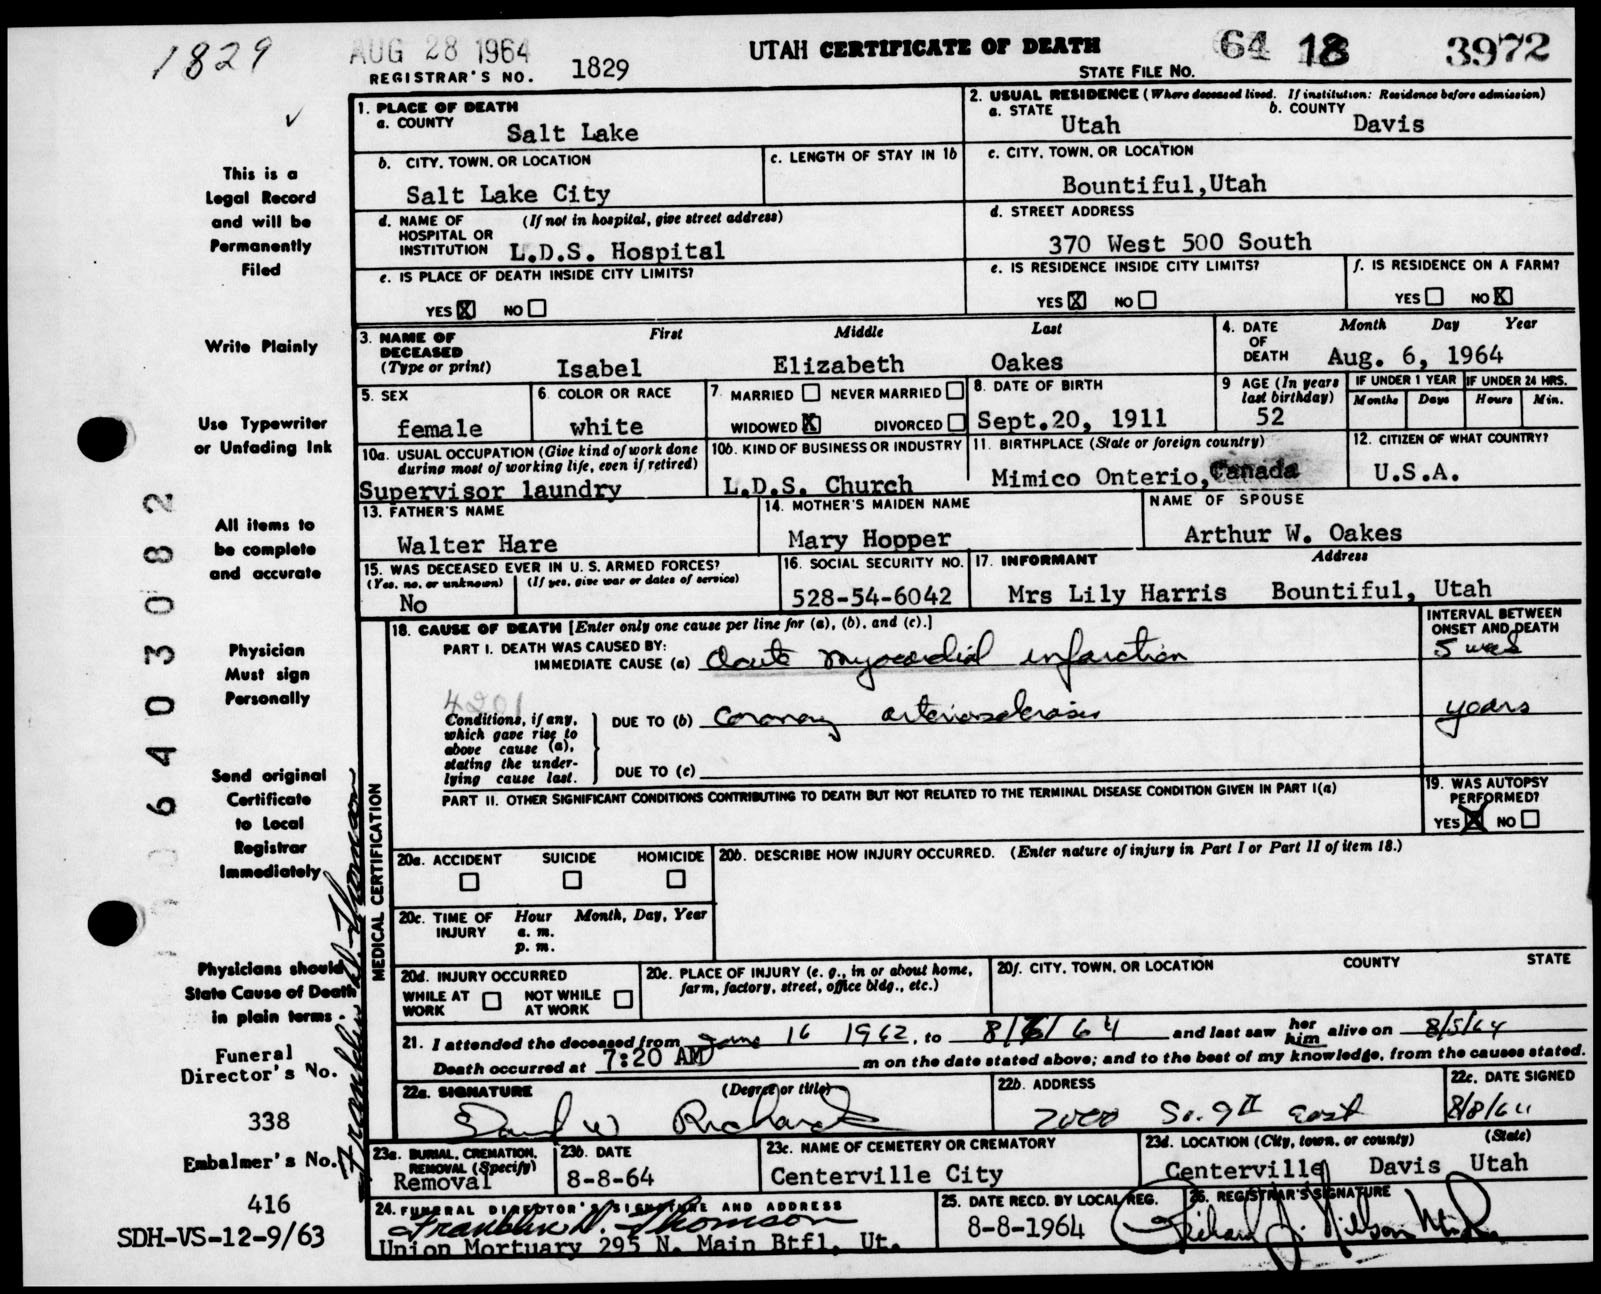 1829
AUG 28 1964
REGISTRAR'S NO. 1829
UTAH CERTIFICATE OF DEATH
STATE FILE No. 64 18 3972
This is a
Legal Record
and will be
Permanently
Filed
Write Plainly
Use Typewriter
or Unfading Ink
All items to
be complete
and accurate
Physician
Must sign
Personally
Send original
Certificate
to Local
Registrar
Immediately
Physicians should
State Cause of Death
in plain terms -
Funeral
Director's No.
338
Embalmer's No.
416
SDH-VS-12-9/63
6403082
Franklin D. Thomson
1. PLACE OF DEATH
a. COUNTY Salt Lake
2. USUAL RESIDENCE (Where deceased lived. If institution: Residence before admission)
a. STATE Utah b. COUNTY Davis
b. CITY, TOWN, OR LOCATION Salt Lake City
c. LENGTH OF STAY IN 1b
c. CITY, TOWN, OR LOCATION
Bountiful,Utah
d. NAME OF HOSPITAL OR INSTITUTION (If not in hospital, give street address)
L.D.S. Hospital
d. STREET ADDRESS
370 West 500 South
e. IS PLACE OF DEATH INSIDE CITY LIMITS?
YES X NO
e. IS RESIDENCE INSIDE CITY LIMITS?
YES X NO
f. IS RESIDENCE ON A FARM?
YES NO X
3. NAME OF DECEASED (Type or print) First Middle Last
Isabel Elizabeth Oakes
4. DATE OF DEATH Month Day Year
Aug. 6, 1964
5. SEX
female
6. COLOR OR RACE
white
7. MARRIED NEVER MARRIED
WIDOWED X DIVORCED
8. DATE OF BIRTH
Sept.20, 1911
9 AGE (In years last birthday)
52
IF UNDER 1 YEAR Months Days
IF UNDER 24 HRS. Hours Min.
10a. USUAL OCCUPATION (Give kind of work done during most of working life, even if retired)
Supervisor laundry
10b. KIND OF BUSINESS OR INDUSTRY
L.D.S. Church
11. BIRTHPLACE (State or foreign country)
Mimico Onterio,Canada
12. CITIZEN OF WHAT COUNTRY?
U.S.A.
13. FATHER'S NAME
Walter Hare
14. MOTHER'S MAIDEN NAME
Mary Hopper
NAME OF SPOUSE
Arthur W. Oakes
15. WAS DECEASED EVER IN U. S. ARMED FORCES?
(Yes, no, or unknown) (If yes, give war or dates of service)
No
16. SOCIAL SECURITY NO.
528-54-6042
17. INFORMANT Address
Mrs Lily Harris Bountiful, Utah
MEDICAL CERTIFICATION
18. CAUSE OF DEATH [Enter only one cause per line for (a), (b), and (c).]
INTERVAL BETWEEN ONSET AND DEATH
PART I. DEATH WAS CAUSED BY:
IMMEDIATE CAUSE (a) Acute myocardial infarction 5
4201
Conditions, if any, which gave rise to above cause (a), stating the underlying cause last.
DUE TO (b) coronary arteriosclerosis years
DUE TO (c)
PART II. OTHER SIGNIFICANT CONDITIONS CONTRIBUTING TO DEATH BUT NOT RELATED TO THE TERMINAL DISEASE CONDITION GIVEN IN PART I(a)
19. WAS AUTOPSY PERFORMED?
YES X NO
20a. ACCIDENT SUICIDE HOMICIDE
20b. DESCRIBE HOW INJURY OCCURRED. (Enter nature of injury in Part I or Part II of item 18.)
20c. TIME OF INJURY Hour Month, Day, Year
a. m.
p. m.
20d. INJURY OCCURRED
WHILE AT WORK NOT WHILE AT WORK
20e. PLACE OF INJURY (e. g., in or about home, farm, factory, street, office bldg., etc.)
20f. CITY, TOWN, OR LOCATION COUNTY STATE
21. I attended the deceased from 16 1962, to 8/6/64 and last saw her him alive on 8/5/64
Death occurred at 7:20 AM m on the date stated above; and to the best of my knowledge, from the causes stated.
22a. SIGNATURE (Degree or title)
W Richards
22b. ADDRESS
2000 So. 9th East
22c. DATE SIGNED
8/8/64
23a. BURIAL, CREMATION, REMOVAL (Specify)
Removal
23b. DATE
8-8-64
23c. NAME OF CEMETERY OR CREMATORY
Centerville City
23d. LOCATION (City, town, or county) (State)
Centerville Davis Utah
24. FUNERAL DIRECTOR'S SIGNATURE AND ADDRESS
Franklin D. Thomson
Union Mortuary 295 N. Main Btfl, Ut.
25. DATE RECD. BY LOCAL REG.
8-8-1964
26. REGISTRAR'S SIGNATURE